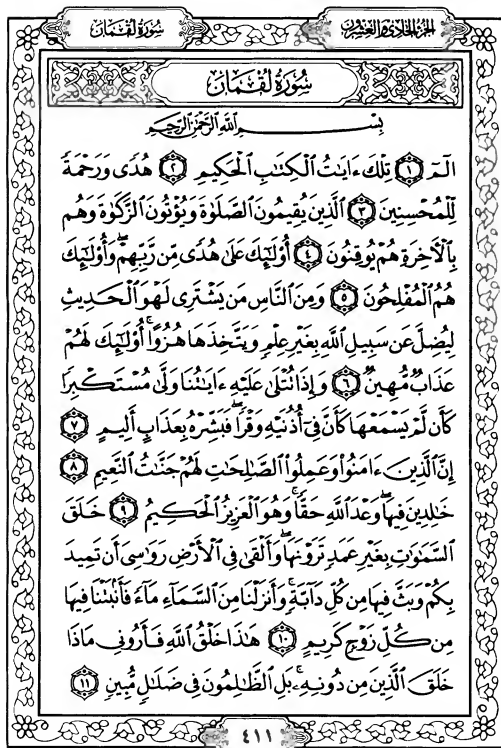 الجزء الحادي والعشرون سورة لقمان
سُورَةُ لُقْمَان
بِسْمِ ٱللَّهِ ٱلرَّحْمَٰنِ ٱلرَّحِيمِ
الٓمٓ ١ تِلْكَ ءَايَٰتُ ٱلْكِتَٰبِ ٱلْحَكِيمِ ٢ هُدًى وَرَحْمَةً
لِّلْمُحْسِنِينَ ٣ ٱلَّذِينَ يُقِيمُونَ ٱلصَّلَوٰةَ وَيُؤْتُونَ ٱلزَّكَوٰةَ وَهُم
بِٱلْءَاخِرَةِ هُمْ يُوقِنُونَ ٤ أُو۟لَٰٓئِكَ عَلَىٰ هُدًى مِّن رَّبِّهِمْ ۖ وَأُو۟لَٰٓئِكَ
هُمُ ٱلْمُفْلِحُونَ ٥ وَمِنَ ٱلنَّاسِ مَن يَشْتَرِى لَهْوَ ٱلْحَدِيثِ
لِيُضِلَّ عَن سَبِيلِ ٱللَّهِ بِغَيْرِ عِلْمٍ وَيَتَّخِذَهَا هُزُوًا ۚ أُو۟لَٰٓئِكَ لَهُمْ
عَذَابٌ مُّهِينٌ ٦ وَإِذَا تُتْلَىٰ عَلَيْهِ ءَايَٰتُنَا وَلَّىٰ مُسْتَكْبِرًا
كَأَن لَّمْ يَسْمَعْهَا كَأَنَّ فِىٓ أُذُنَيْهِ وَقْرًا ۖ فَبَشِّرْهُ بِعَذَابٍ أَلِيمٍ ٧
إِنَّ ٱلَّذِينَ ءَامَنُوا۟ وَعَمِلُوا۟ ٱلصَّٰلِحَٰتِ لَهُمْ جَنَّٰتُ ٱلنَّعِيمِ ٨
خَٰلِدِينَ فِيهَا ۖ وَعْدَ ٱللَّهِ حَقًّا ۚ وَهُوَ ٱلْعَزِيزُ ٱلْحَكِيمُ ٩ خَلَقَ
ٱلسَّمَٰوَٰتِ بِغَيْرِ عَمَدٍ تَرَوْنَهَا ۖ وَأَلْقَىٰ فِى ٱلْأَرْضِ رَوَٰسِىَ أَن تَمِيدَ
بِكُمْ وَبَثَّ فِيهَا مِن كُلِّ دَآبَّةٍ ۚ وَأَنزَلْنَا مِنَ ٱلسَّمَآءِ مَآءً فَأَنۢبَتْنَا فِيهَا
مِن كُلِّ زَوْجٍ كَرِيمٍ ١٠ هَٰذَا خَلْقُ ٱللَّهِ فَأَرُونِى مَاذَا
خَلَقَ ٱلَّذِينَ مِن دُونِهِۦ ۚ بَلِ ٱلظَّٰلِمُونَ فِى ضَلَٰلٍ مُّبِينٍ ١١
٤١١